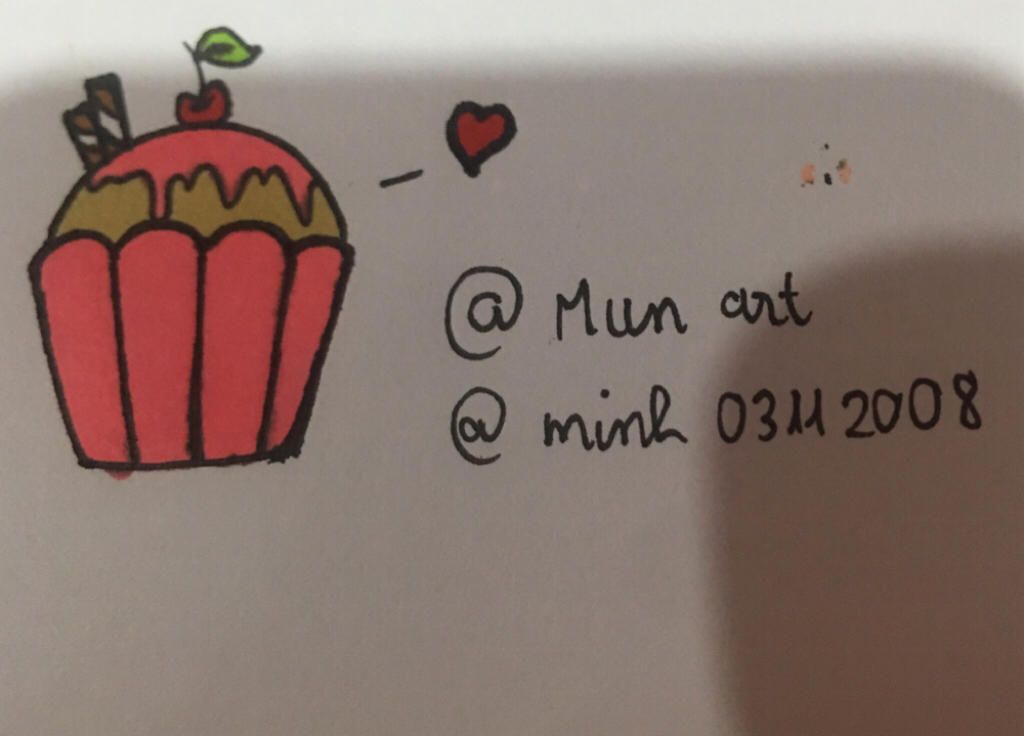 @ Mun art
@ minh 03112008